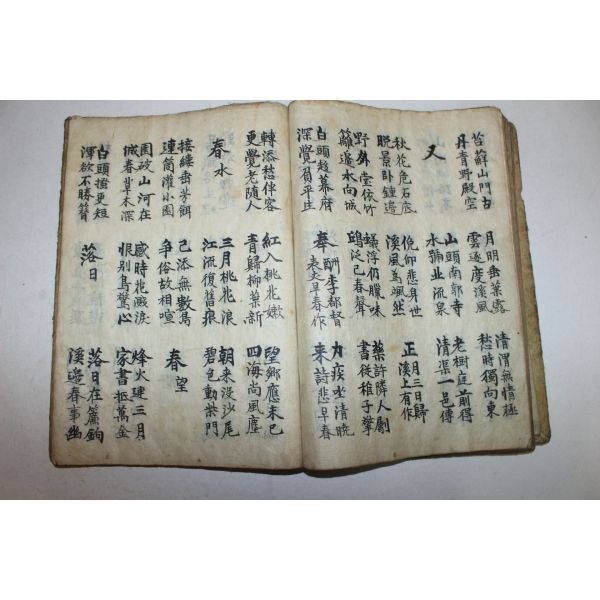 苔蘚山門古
丹青野殿空
月明垂葉露
雲逐度溪風
清渭無情極
愁時獨向東
又
山頭南郭寺
水號北流泉
老樹庭前得
清渠一邑傳
秋花危石底
晚景卧鐘邊
俛仰悲身世
溪風為颯然
正月三日歸
溪上有作
野外堂依竹
籬邊水向城
蟻浮仍臘味
鷗泛已春聲
藥許隣人劚
書從稚子擎
白頭趨幕府
深覺負平生
奉酬李都督
表丈早春作
力疾坐清曉
來詩悲早春
轉添愁伴客
更覺老隨人
紅入桃花嫩
青歸柳葉新
望鄉應未已
四海尚風塵
春水
三月桃花浪
江流復舊痕
朝來沒沙尾
碧色動柴門
接縷垂芳餌
連筒灌小園
已添無數鳥
爭俗故相喧
春望
國破山河在
城春草木深
感時花濺淚
恨別鳥驚心
烽火連三月
家書抵萬金
白頭搔更短
渾欲不勝簪
落日
落日在簾鉤
溪邊春事幽